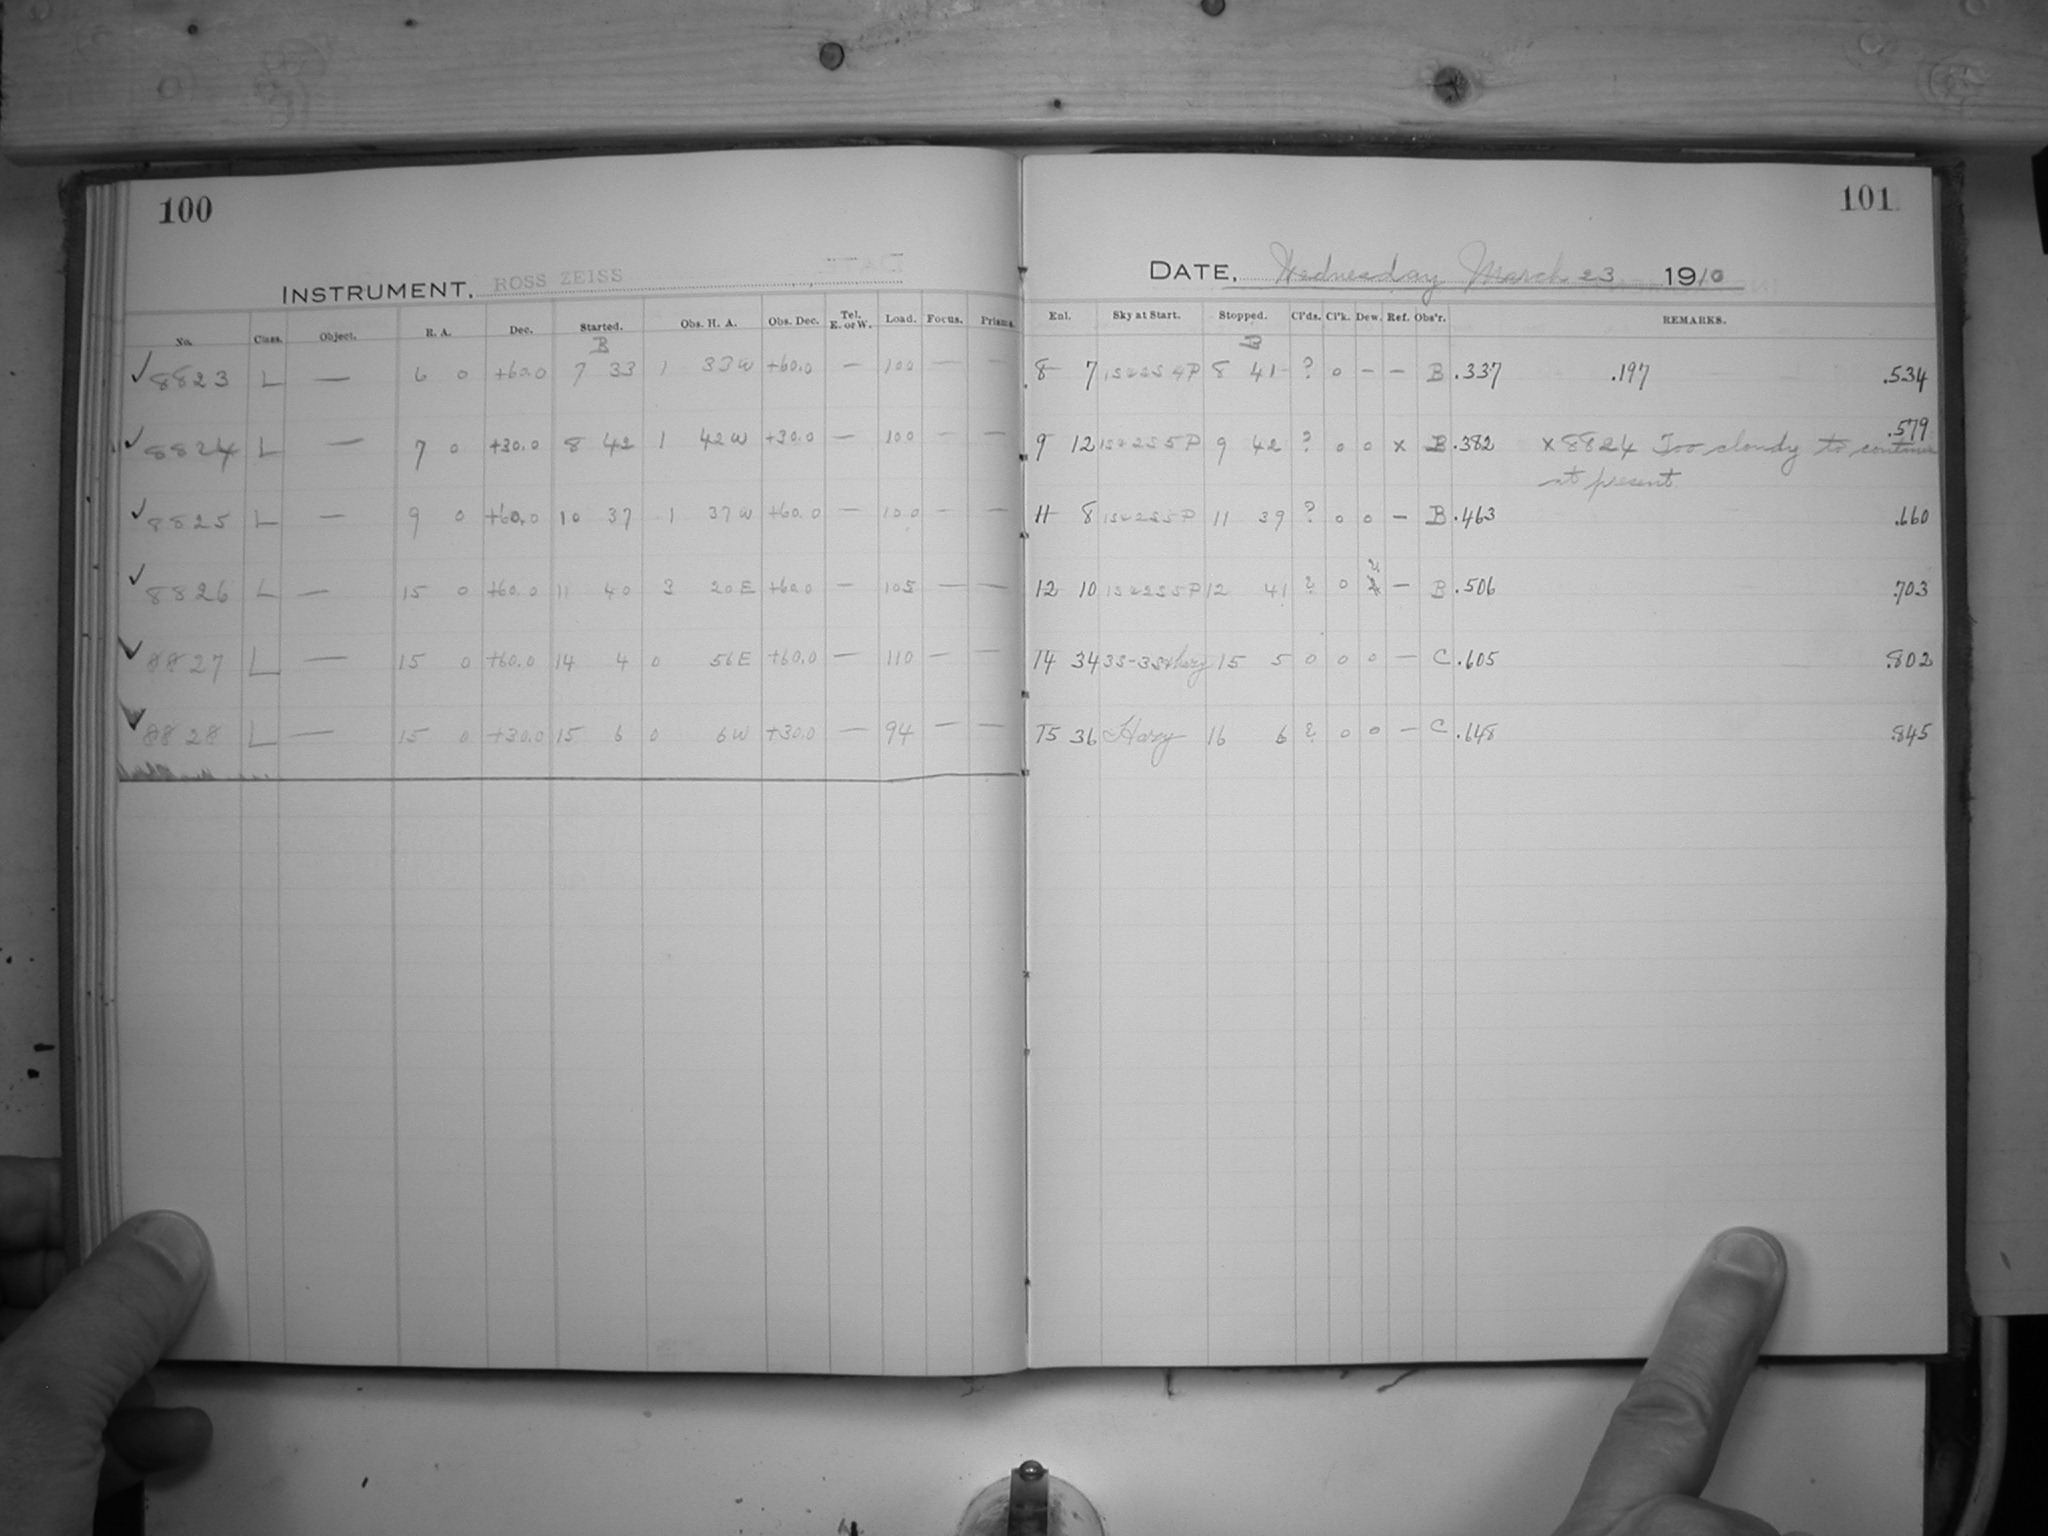 100
INSTRUMENT, ROSS ZEISS
No. Class. Object. R. A. Dec. Started. Obs. H. A. Obs. Dec. Tel. E. or W. Load. Focus. Prisms.
B
✓ 8823 L — 6 0 +60.0 7 33 1 33W +60.0 — 100 — —
✓ 8824 L — 7 0 +30.0 8 42 1 42W +30.0 — 100 — —
✓ 8825 L — 9 0 +60.0 10 37 1 37W +60.0 — 100 — —
✓ 8826 L — 15 0 +60.0 11 40 3 20E +60.0 — 105 — —
✓ 8827 L — 15 0 +60.0 14 4 0 56E +60.0 — 110 — —
✓ 8828 L — 15 0 +30.0 15 6 0 6W +30.0 — 94 — —
101
DATE, Wednesday March 23 1910
Enl. Sky at Start. Stopped. Cl'ds. Cl'k. Dew. Ref. Obs'r. REMARKS.
B
8 7 8 41 ? 0 – – B .337 .197 .534
.579
9 12 9 42 ? 0 0 x B .382 x 8824 Too cloudy to continue
at present.
11 8 11 39 ? 0 0 – B .463 .660
12 10 12 41 ? 0 – B .506 .703
14 34 15 5 0 0 0 – C .605 .802
15 36 Hazy 16 6 ? 0 0 – C .648 .845